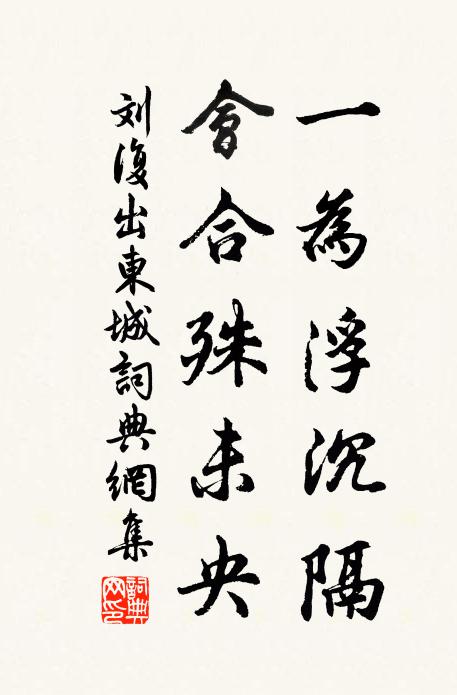 一為浮沉隔
會合殊未央
刘復出東城詞典網集
詞典网印